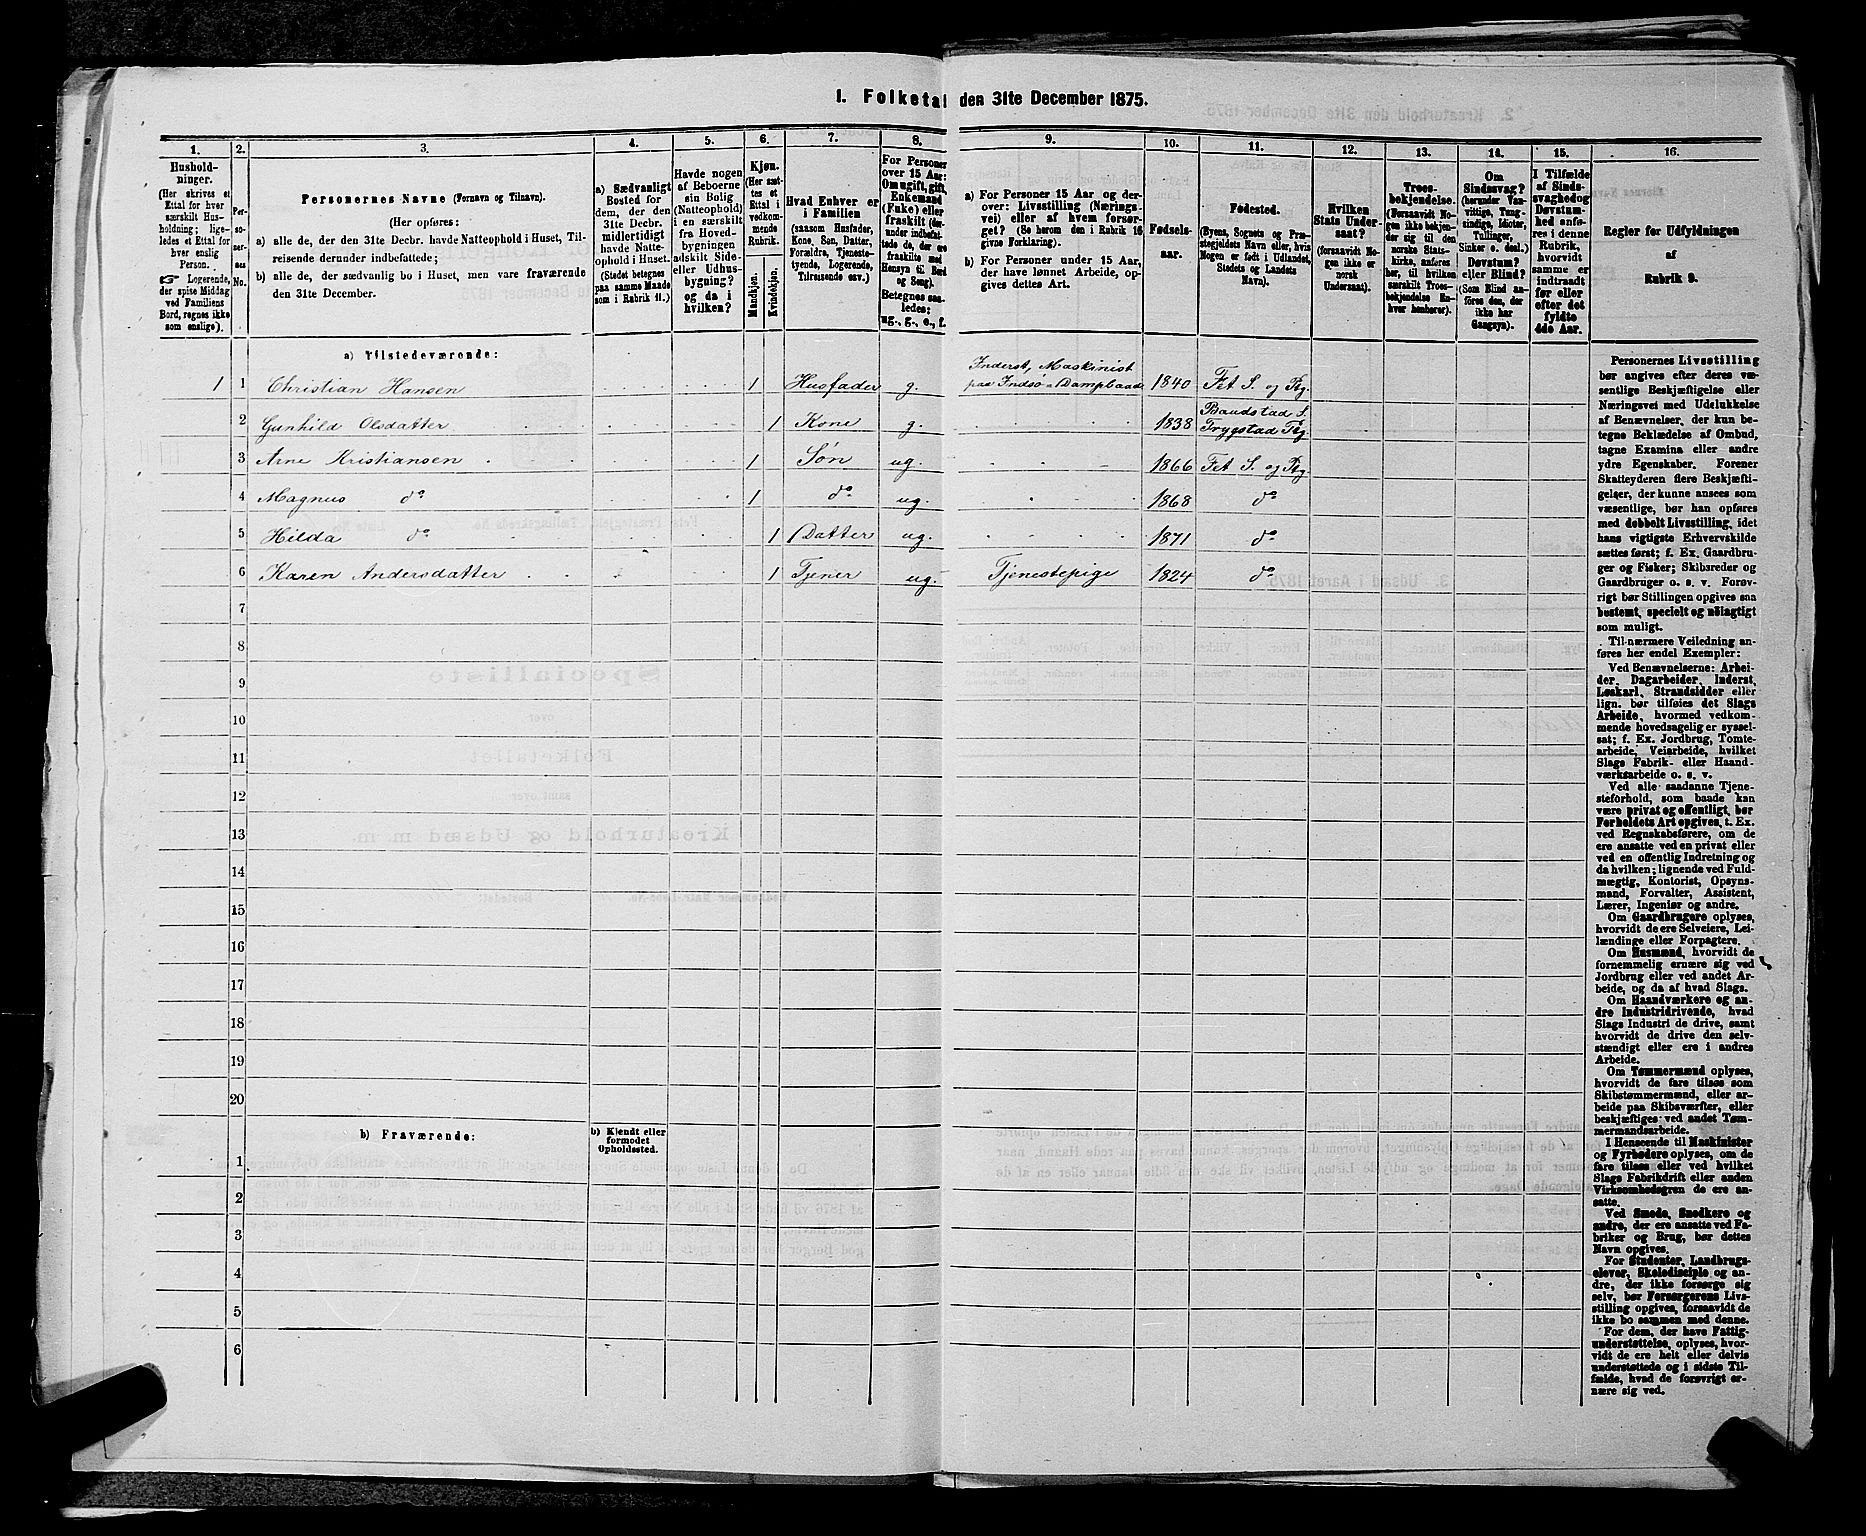 I. Folketal den 31te December 1875.
1. 2. 3. 4. 5. 6. 7. 8. 9. 10. 11. 12. 13. 14. 15. 16.
Hushold-
ninger.
(Her skrives et
Ettal for hver
særskilt Hus-
holdning; lige-
ledes et Ettal for
hver enslig
Person.
☞ Logerende,
der spise Middag
ved Familiens
Bord, regnes ikke
som enslige).
Per-
so-
ner-
nes
No.
Personernes Navne (Fornavn og Tilnavn).
(Her opføres:
a) alle de, der den 31te Decbr. havde Natteophold i Huset, Til-
reisende derunder indbefattede;
b) alle de, der sædvanlig bo i Huset, men vare fraværende
den 31te December.
a) Sædvanligt
Bosted for
dem, der den
31te Decbr.
midlertidigt
havde Natte-
ophold i Huset.
(Stedet betegnes
paa samme Maade
som i Rubrik 11.)
Havde nogen
af Beboerne
sin Bolig
(Natteophold)
i en særskilt
fra Hoved-
bygningen
adskilt Side-
eller Udhus-
bygning?
og da i
hvilken?
Kjøn.
(Her sæt-
tes et
Ettal i
vedkom-
mende
Rubrik.
Mandkjøn.
Kvindekjøn.
Hvad Enhver er
i Familien
(saasom Husfader,
Kone, Søn, Datter,
Forældre, Tjeneste-
tyende, Logerende,
Tilreisende osv.)
For Personer
over 15 Aar:
Om ugift, gift,
Enkemand
(Enke) eller
fraskilt (der-
under indbefat-
tede de, der ere
fraskilte med
Hensyn til Bord
og Seng).
Betegnes saa-
ledes:
ug., g., e., f.
a) For Personer 15 Aar og der-
over: Livsstilling (Nærings-
vei) eller af hvem forsør-
get? (Se herom den i Rubrik 16
givne Forklaring).
b) For Personer under 15 Aar,
der have lønnet Arbeide, op-
gives dettes Art.
Fødsels-
aar.
Fødested.
(Byens, Sognets og Præ-
stegjeldets Navn eller, hvis
Nogen er født i Udlandet,
Stedets og Landets
Navn).
Hvilken
Stats Under-
saat?
(forsaavidt No-
gen ikke er
norsk
Undersaat).
Troes-
bekjendelse.
(Forsaavidt No-
gen ikke bekjen-
der sig til den
norske Stats-
kirke, anføres
her, til hvilken
særskilt Troes-
bekjendelse En-
hver henhører).
Om
Sindssvag?
(herunder Van-
vittige, Tung-
sindige, Idioter,
Tullinger,
Sinker o. desl.)
Døvstum?
eller Blind?
(Som Blind an-
føres den, der
ikke har
Gangsyn).
I Tilfælde
af Sinds-
svaghed og
Døvstum-
hed anfø-
res i denne
Rubrik,
hvorvidt
samme er
indtraadt
før eller
efter det
fyldte
4de Aar.
Regler for Udfyldningen
af
Rubrik 9.
a) Tilstedeværende:
1 1 Christian Hansen 1 Husfader g. Inderst, Maskinist
paa Indsø Dampbaad 1840 Fet S. og Pg.
2 Gunhild Olsdatter 1 Kone g. 1838 Baadstad S.
Trygstad Pg.
3 Arne Kristiansen 1 Søn ug. 1866 Fet S. og Pg.
4 Magnus do 1 do ug. 1868 do
5 Hilda do 1 Datter ug. 1871 do
6 Karen Andersdatter 1 Tjener ug. Tjenestepige 1824 do
7
8
9
10
11
12
13
14
15
16
17
18
19
20
b) Fraværende:
b) Kjendt eller
formodet
Opholdssted.
1
2
3
4
5
6
Personernes Livsstilling
bør angives efter deres væ-
sentlige Beskjæftigelse eller
Næringsvei med Udelukkelse
af Benævnelser, der kun be-
tegne Beklædelse af Ombud,
tagne Examina eller andre
ydre Egenskaber. Forener
Skatteyderen flere Beskjæfti-
gelser, der kunne ansees som
væsentlige, bør han opføres
med dobbelt Livsstilling, idet
hans vigtigste Erhvervskilde
sættes først; f. Ex. Gaardbru-
ger og Fisker; Skibsreder og
Gaardbruger o. s. v. Forøv-
rigt bør Stillingen opgives saa
bestemt, specielt og nöiagtigt
som muligt.
Til nærmere Veiledning an-
føres her endel Exempler:
Ved Benævnelserne: Arbei-
der, Dagarbeider, Inderst,
Løskarl, Strandsidder eller
lign. bør tilføies det Slags
Arbeide, hvormed vedkom-
mende hovedsagelig er syssel-
sat; f. Ex. Jordbrug, Tomte-
arbeide, Veiarbeide, hvilket
Slags Fabrik- eller Haand-
værksarbeide o. s. v.
Ved alle saadanne Tjene-
steforhold, som baade kan
være privat og offentligt, bør
Forholdets Art opgives, t. Ex.
ved Regnskabsførere, om de
ere ansatte ved en privat eller
ved en offentlig Indretning og
da hvilken; lignende ved Fuld-
mægtig, Kontorist, Opsyns-
mand, Forvalter, Assistent,
Lærer, Ingeniør og andre.
Om Gaardbrugere oplyses,
hvorvidt de ere Selveiere, Lei-
lændinge eller Forpagtere.
Om Husmænd, hvorvidt de
fornemmelig ernære sig ved
Jordbrug eller ved andet Ar-
beide, og da af hvad Slags.
Om Haandværkere og an-
dre Industridrivende, hvad
Slags Industri de drive, samt
hvorvidt de drive den selv-
stændigt eller ere i andres
Arbeide.
Om Tømmermænd oplyses,
hvorvidt de fare tilsøs som
Skibstømmermænd, eller ar-
beide paa Skibsværfter, eller
beskjæftiges ved andet Tøm-
mermandsarbeide.
I Henseende til Maskinister
og Fyrbødere oplyses, om de
fare tilsøs eller ved hvilket
Slags Fabrikdrift eller anden
Virksomhedsgren de ere an-
satte.
Ved Smede, Snedkere og
andre, der ere ansatte ved Fa-
briker og Brug, bør dettes
Navn opgives.
For Studenter, Landbrugs-
elever, Skoledisciple og an-
dre, der ikke forsørge sig
selv, bør Forsørgerens Livs-
stilling opgives, forsaavidt de
ikke bo sammen med denne.
For dem, der have Fattig-
understøttelse, oplyses, hvor-
vidt de ere helt eller delvis
understøttede og i sidste Til-
fælde, hvad de forøvrigt er-
nære sig ved.